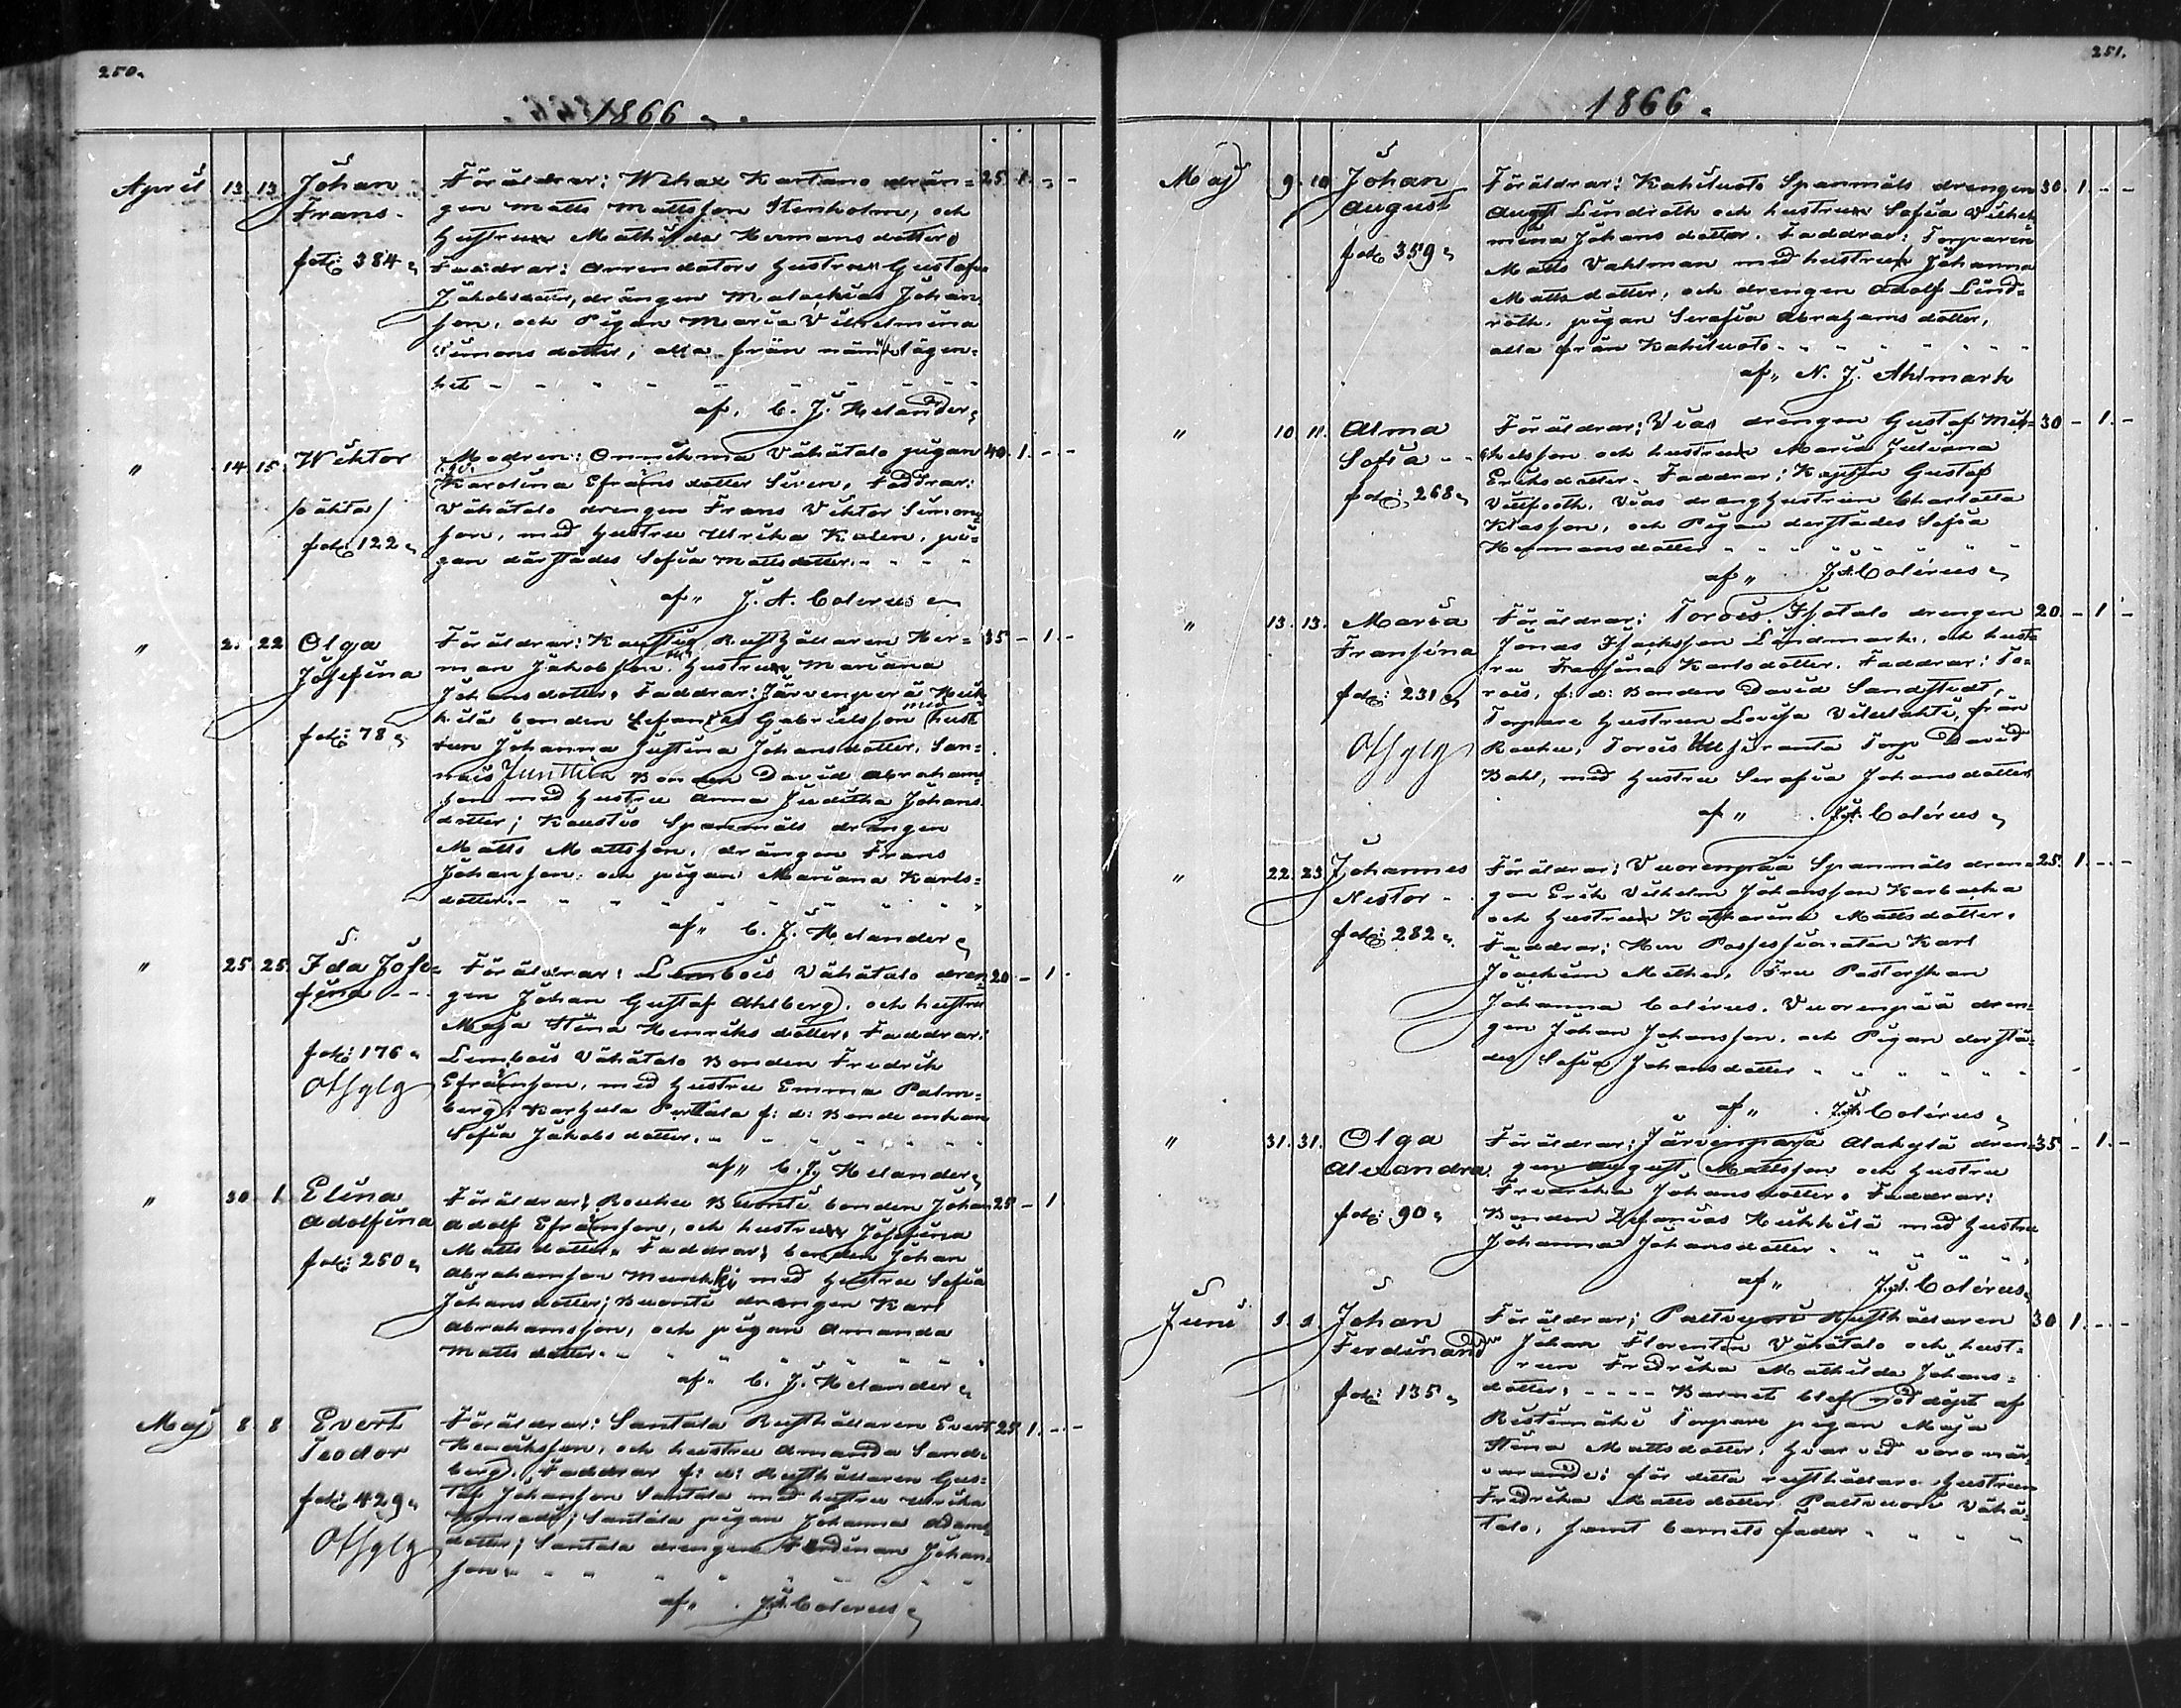 250.
1866.
April 13. 13. Johan Föräldrar: Wehax Kartano drän= 25. 1. - -
Frans. gen Matts Mattsson Stenholm, och
Hustrun Mathilda Hermansdotter
fol: 384. Faddrar: Arrendators Hustrun Gustafva
Jakobsdotter, drängen Malachias Johan
sson, och Pigan Maria Vilhelmina
Simons dotter, alla från nämde lägen=
het
af. C. J. Helander.
" 14. 15. Wiktor Modren: Onnikma Vähätalo pigan 40. 1. - -
Karolina Efraims dotter Siren, Faddrar:
/oäkta/ Vähätalo drengen Frans Viktor Simons
fol: 122. son, med Hustru Ulrika Kalen, pi=
gan därstädes Sofia Mattsdotter.
af " J. A. Colerus
" 21. 22 Olga Föräldrar: Kaustio Rusthållaren Her= 35 - 1. -
Josefina man Jakobsson. Hustrun Mariana
Johansdotter. Faddrar: Järvenperä Heik
kilä bonden Sefanias Gabrielsson med hust
fol: 78. run Johanna Justina Johansdotter, San=
nais Junttila Bonden David Abraham
son med Hustru Anna Juditha Johans
dotter; Kaustio Spanmåls drängen
Matts Mattsson, drängen Frans
Johansson. och pigan Mariana Karls=
dotter.
af " C. J. Helander
" 25. 25. Ida Jose= Föräldrar: Lembois Vähätalo dren 20 - 1.
fina gen Johan Gustaf Ahlberg, och hustru
Maja Stina Henriks dotter. Faddrar:
fol: 176. Lembois Vähätalo Bonden Fredrik
Efraimson, med Hustru Emma Palm=
berg; Karhula Perttala f: d: Bonde enkan
Sofia Jakobs dotter.
af " C. J. Helander
" 30. 1. Elina Föräldrar: Rouhu Buorti bonden Johan 25 - 1
Adolfina Adolf Efraimson, och hustrun Josefina
Matts dotter. Faddrar: bonden Johan
fol: 250. Abrahamson Munkki med Hustru Sofia
Johansdotter; Buorti drengen Karl
Abrahamsson, och pigan Amanda
Matts dotter.
af " C. J. Helander
Maj 8. 8 Evert Föräldrar: Santala Rusthållaren Evert 25 1. - -
Teodor Henriksson, och hustru Amanda Sand=
berg. Faddrar f: d: Rusthållaren Gus=
fol: 429. taf Johansson Santala med hustru Ulrika
Honradi; Santala pigan Johanna Adams
dotter; Santala drengen Ferdinan Johan=
son.
af " J. A. Colerus

251.
1866.
Maj 9. 10 Johan Föräldrar: Kahiluoto Spanmåls drengen 30. 1. - -
August August Lindroth och hustrun Sofia Vilhel
mina Johans dotter. Faddrar: Torparen
fol: 359. Matts Vahlman med hustrun Johanna
Mattsdotter, och drengen Adolf Lind=
roth. pigan Serafia Abrahams dotter,
alla från Kahiluoto
af " N. J. Ahlmark
" 10 11. Alma Föräldrar: Vias drengen Gustaf Mik= 30 - 1. -
Sofia kelsson och hustrun Maria Juliana
Eriksdotter. Faddrar: Kapten Gustaf
fol: 268. Vias dränghustrun Charlotta
Klasson, och Pigan derstädes Sofia
Hermansdotter
af " J. A. Colérus
" 13. 13. Maria Föräldrar: Torois Isotalo drengen 20. - 1 -
Fransina Jonas Isacksson Lindmark, och hust
ru Fransina Karlsdotter. Faddrar: To=
fol: 231. rois, f: d: Bonden David Sandstedt,
Torpare Hustrun Lovisa Vilulahti, från
Rouhu, Torois Torp David
Bahl, med Hustru Serafia Johansdotter
af " J. A. Colérus
" 22. 23. Johannes Föräldrar: Vuorenpää Spanmåls dren= 25. 1. - -
Nestor gen Erik Vilhelm Johansson Karbacka
och Hustrun Katharina Mattsdotter.
fol: 282. Faddrar: Herr Possessionaten Karl
Joachim Mether, Fru Pastorskan
Johanna Colérus. Vuorenpää dren=
gen Johan Johansson. och Pigan derstä=
des Sofia Johansdotter
af " J. A. Colérus
" 31. 31. Olga Föräldrar: Järvenpää Alakylä dren= 35 - 1. -
Alexandra. gen August Mattsson och Hustru
Fredrika Johansdotter. Faddrar:
fol: 90. Bonden Zefanias Heikkilä med Hustru
Johanna Johansdotter
af " J. A. Colérus
Juni 1. 1. Johan Föräldrar: Paltvuori Rusthållaren 30 1. - -
Ferdinand Johan Florentin Vähätalo och hust=
run Fredrika Mathilda Johans=
fol: 135. dotter, - - - - Barnet blef nöd döpt af
Ristimäki Torpare pigan Maja
Stina Mattsdotter, hvar vid voro när=
varande: för detta rusthållare Hustrun
Fredrika Matts dotter Paltvuori Vähä=
talo, samt barnets fader